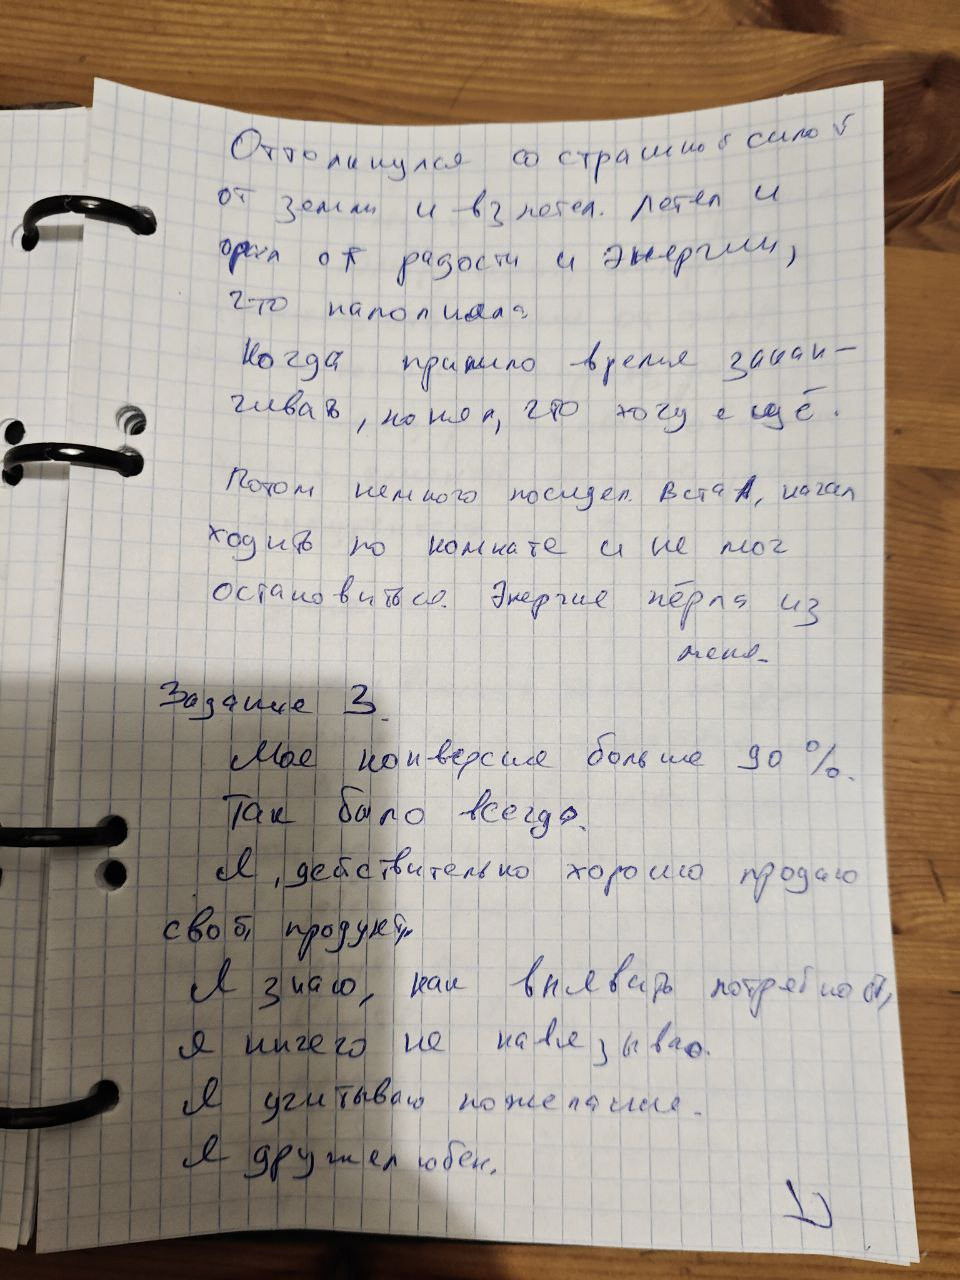 Оттолкнулся со страшной силой
от земли и взлетел. Летел и
орал от радости и энергии,
что наполняла
Когда пришло время закан-
чивать, понял, что хочу ещё.
Потом немного посидел. Встал, начал
ходить по комнате и не мог
остановиться. Энергия пёрла из
меня.
Задание 3.
Моя конверсия больше 90%.
Так было всегда.
Я, действительно хорошо продаю
свой продукт.
Я знаю, как выявить потребность,
я ничего не навязываю.
Я учитываю пожелания.
Я дружелюбен.